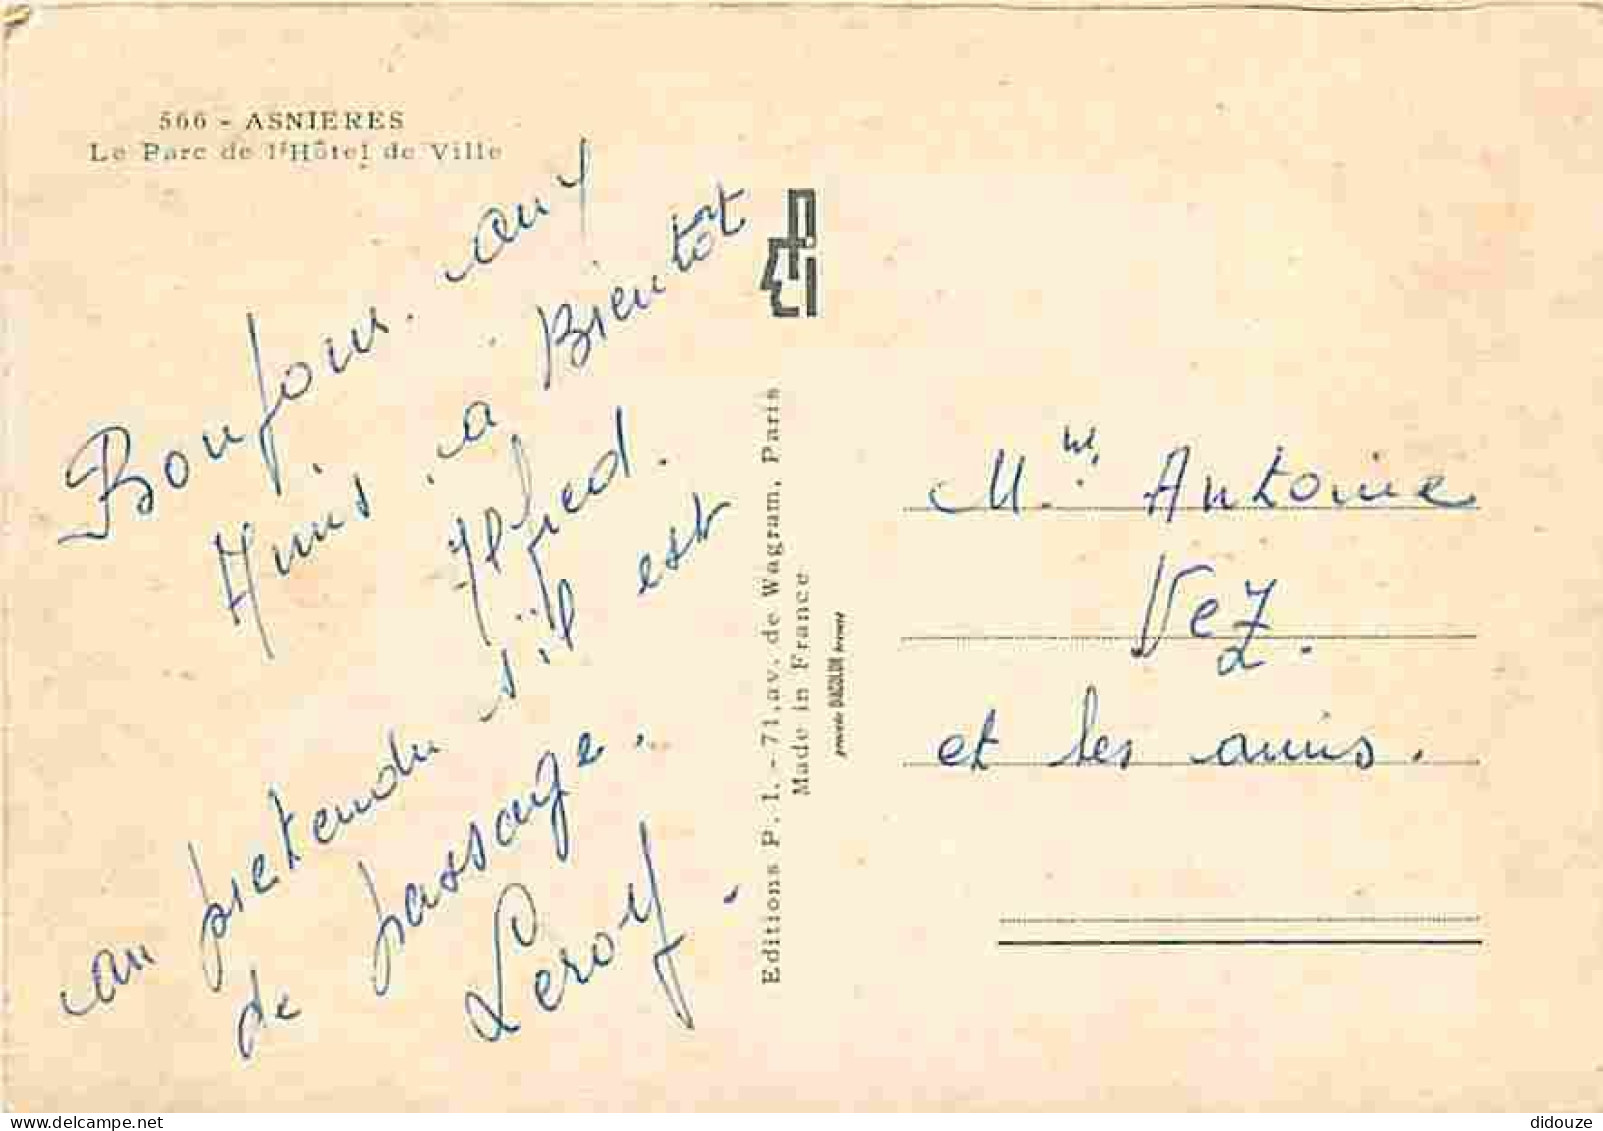 566 - ASNIERES
Le Parc de l'Hôtel de Ville
Bonjour aux
Amis à Bientôt
Alfred.
au pretendu s'il est
de passage.
Leroy.
Editions P. I. - 71, av. de Wagram, Paris
Made in France
procédé DIACOLOR breveté
Mr Antoine
Vez.
et les amis.
delcampe.net
didouze